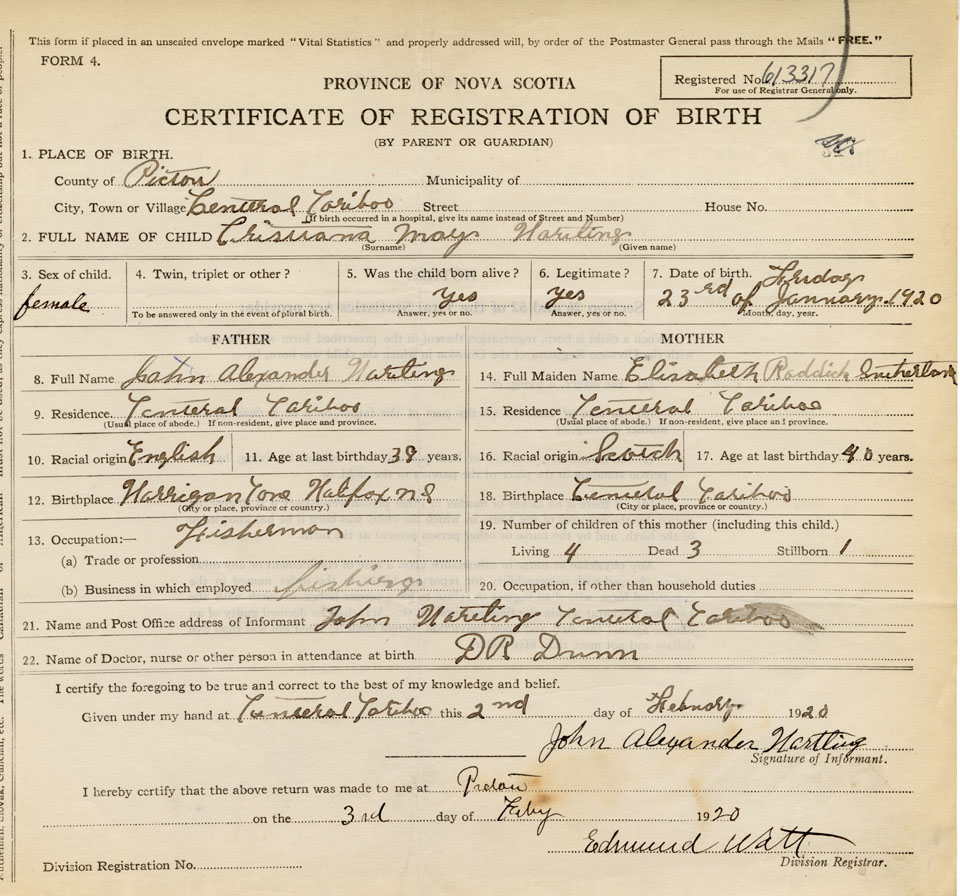 This form if placed in an unsealed envelope marked "Vital Statistics" and properly addressed will, by order of the Postmaster General pass through the Mails "FREE."
FORM 4.
Registered No. 613317
For use of Registrar General only.
PROVINCE OF NOVA SCOTIA
CERTIFICATE OF REGISTRATION OF BIRTH
(BY PARENT OR GUARDIAN)
1. PLACE OF BIRTH.
County of Pictou Municipality of
City, Town or Village Centeral Cariboo Street House No.
(If birth occurred in a hospital, give its name instead of Street and Number)
2. FULL NAME OF CHILD Crisuana May Hartling
(Surname) (Given name)
3. Sex of child. 4. Twin, triplet or other? 5. Was the child born alive? 6. Legitimate? 7. Date of birth. Friday
female yes yes 23rd of January 1920
To be answered only in the event of plural birth. Answer, yes or no. Answer, yes or no. Month, day, year.
FATHER MOTHER
8. Full Name John Alexander Hartling 14. Full Maiden Name Elisabeth Roddick Sutherland
9. Residence. Centeral Cariboo 15. Residence Centeral Cariboo
(Usual place of abode.) If non-resident, give place and province. (Usual place of abode.) If non-resident, give place and province.
10. Racial origin English 11. Age at last birthday 39 years. 16. Racial origin Scotch 17. Age at last birthday 40 years.
12. Birthplace Harrigan Cove Halifax NS 18. Birthplace Centeral Cariboo
(City or place, province or country.) (City or place, province or country.)
13. Occupation:— Fisherman 19. Number of children of this mother (including this child.)
(a) Trade or profession Living 4 Dead 3 Stillborn 1
(b) Business in which employed fishing 20. Occupation, if other than household duties
21. Name and Post Office address of Informant John Hartling Centeral Cariboo
22. Name of Doctor, nurse or other person in attendance at birth DR Dunn
I certify the foregoing to be true and correct to the best of my knowledge and belief.
Given under my hand at Centeral Cariboo this 2nd day of Febuary 1920
John Alexander Hartling
Signature of Informant.
I hereby certify that the above return was made to me at Pictou
on the 3rd day of Feby 1920
Edmund Watt
Division Registrar.
Division Registration No.